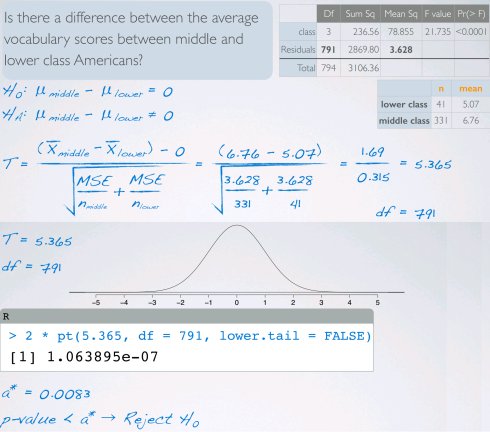 Is there a difference between the average
vocabulary scores between middle and
lower class Americans?
Df Sum Sq Mean Sq F value Pr(> F)
class 3 236.56 78.855 21.735 <0.0001
Residuals 791 2869.80 3.628
Total 794 3106.36
n mean
lower class 41 5.07
middle class 331 6.76
H₀: μ middle − μ lower = 0
H_A: μ middle − μ lower ≠ 0
T = (x̄ middle − x̄ lower) − 0 / √(MSE / n middle + MSE / n lower) = (6.76 − 5.07) / √(3.628 / 331 + 3.628 / 41) = 1.69 / 0.315 = 5.365
df = 791
T = 5.365
df = 791
-5 -4 -3 -2 -1 0 1 2 3 4 5
R
> 2 * pt(5.365, df = 791, lower.tail = FALSE)
[1] 1.063895e-07
α* = 0.0083
p-value < α* → Reject H₀